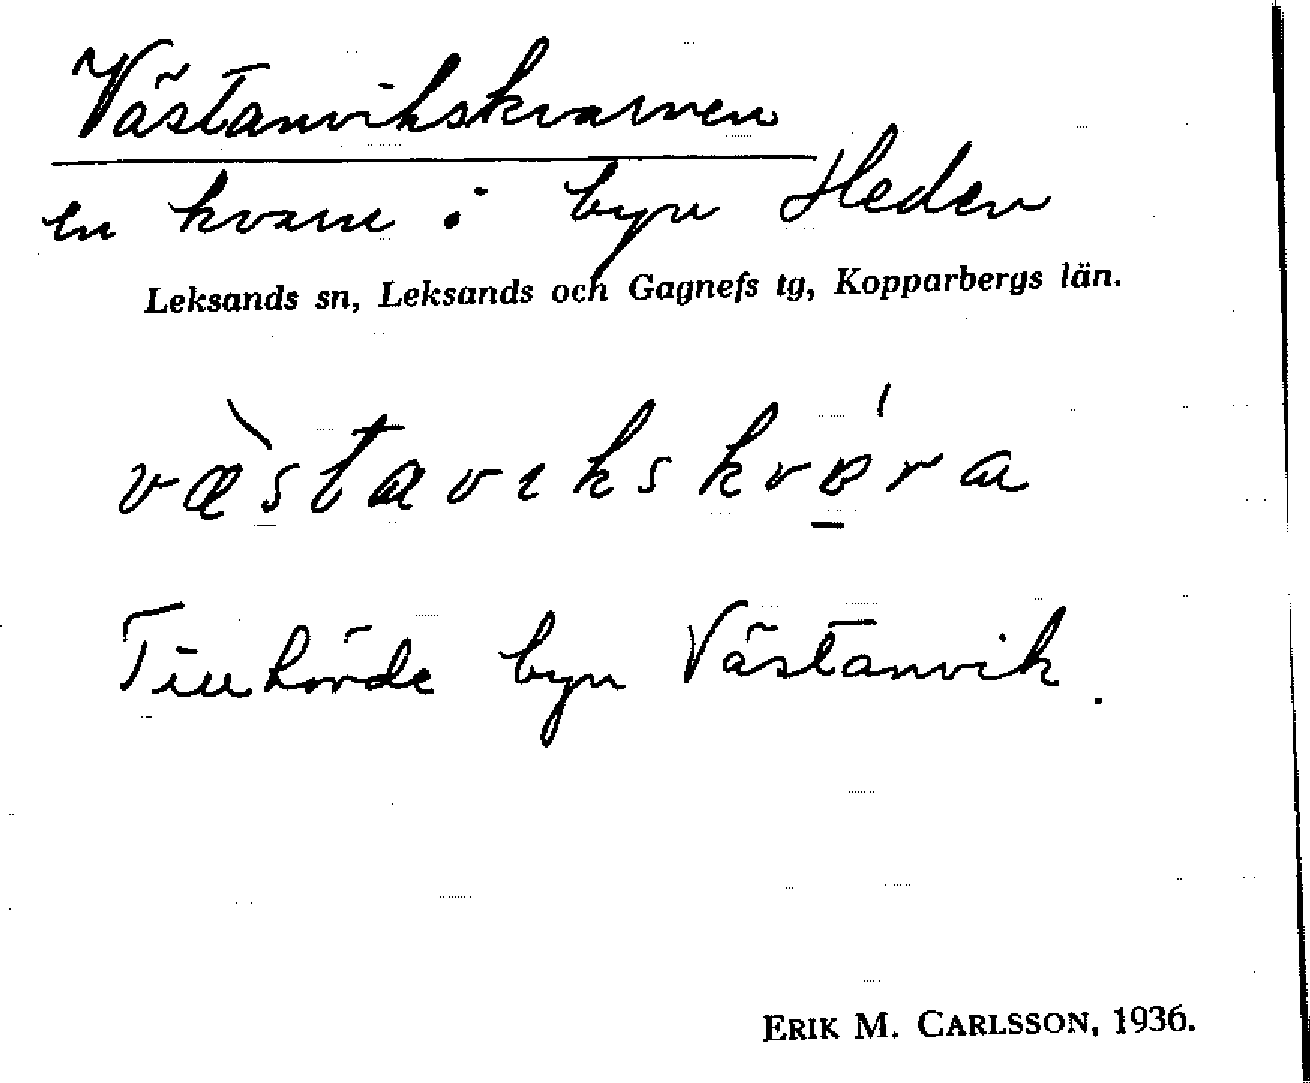 Västanvikskvarnen
en kvarn i byn Heden
Leksands sn, Leksands och Gagnefs tg, Kopparbergs län.
væ̀stavıkskvɐ́ra
Tillhörde byn Västanvik.
ERIK M. CARLSSON, 1936.